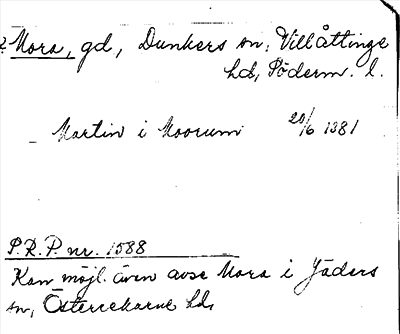 ? Mora, gd, Dunkers sn, Villåttinge
hd, Söderm. l.
_ Martin i Moorum 20/6 1381
P.R.P. nr. 1588
Kan möjl. även avse Mora i Jäders
sn, Österrekarne hd.